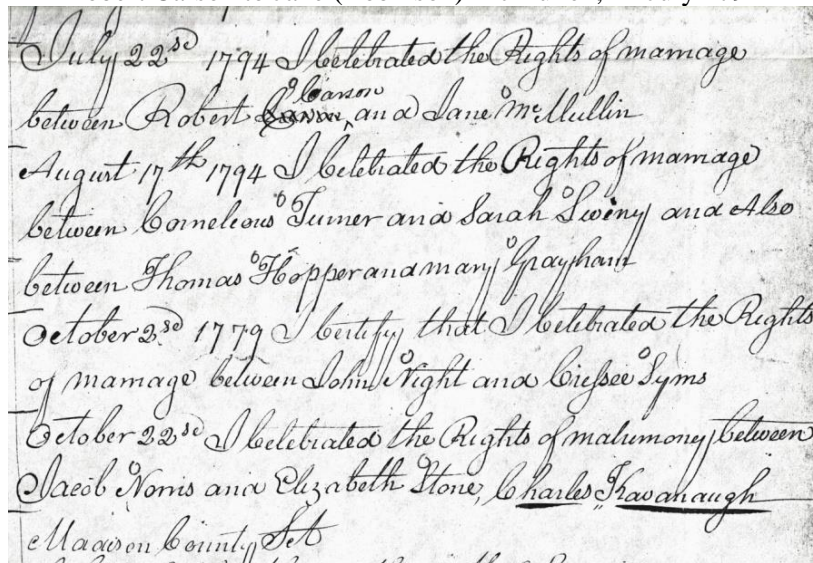 July 22sd 1794 I Celebrated the Rights of marriage
Carson
between Robert and Jane McMullin
August 17th 1794 I Celebrated the Rights of marriage
between Cornelious Turner and Sarah Swiny and Also
between Thomas Hopper and mary Grayham
October 2sd 1779 I Certify that I Celebrated the Rights
of marriage between John Night and Cressee Syms
October 22sd I Celebrated the Rights of matrimony between
Jacob Norris and Elizabeth Stone, Charles Kavanaugh
Madison County Sct